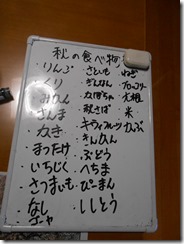 秋の食べ物
りんご
くり
みかん
さんま
かき
まったけ
いちじく
さつまいも
なし
ゴーヤ
さといも
ぎんなん
かぼちゃ
秋さば
キウィフルーツ
きんかん
ぶどう
へちま
ぴーまん
ししとう
ねぎ
ブロッコリー
大根
米
かぶ